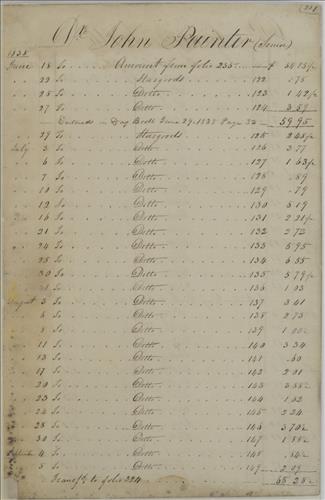 Dr John Painter (Senior)
1838
June 18 To Amount from folio 235
22 To Stargoods 122 .75
25 To Ditto 123 1.42½
27 To Ditto 124 3.57
Day Book June 29, 1838 Page 32 59.95
29 To Stargoods 125 2.45½
July 3 To Ditto 126 3.77
6 To Ditto 127 1.63½
7 To Ditto 128 .89
10 To Ditto 129 .79
12 To Ditto 130 5.19
16 To Ditto 131 2.21½
21 To Ditto 132 2.72
24 To Ditto 133 5.95
25 To Ditto 134 6.55
30 To Ditto 135 5.79½
31 To Ditto 136 1.03
August 3 To Ditto 137 3.61
6 To Ditto 138 2.73
8 To Ditto 139
10 To Ditto 140 3.34
13 To Ditto 141 .60
17 To Ditto 142 2.01
20 To Ditto 143
23 To Ditto 144 1.02
25 To Ditto 145 2.24
28 To Ditto 146
30 To Ditto 147
September 4 To Ditto 148
5 To Ditto 149
Transfd to folio 224